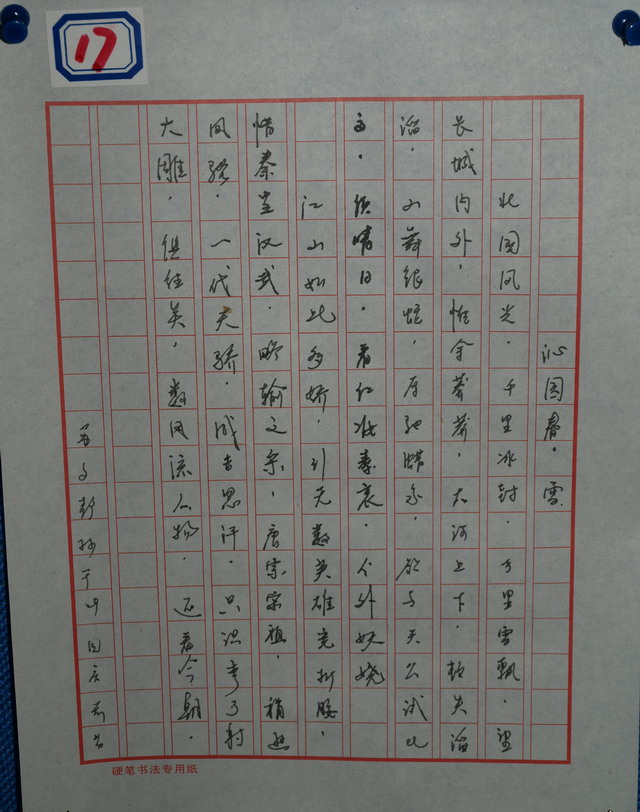 17
沁园春·雪
北国风光，千里冰封，万里雪飘。望
长城内外，惟余莽莽，大河上下，顿失滔
滔。山舞银蛇，原驰蜡象，欲与天公试比
高。须晴日，看红妆素裹，分外妖娆。
江山如此多娇，引无数英雄竞折腰。
惜秦皇汉武，略输文采，唐宗宋祖，稍逊
风骚。一代天骄，成吉思汗，只识弯弓射
大雕。俱往矣，数风流人物，还看今朝。
硬笔书法专用纸